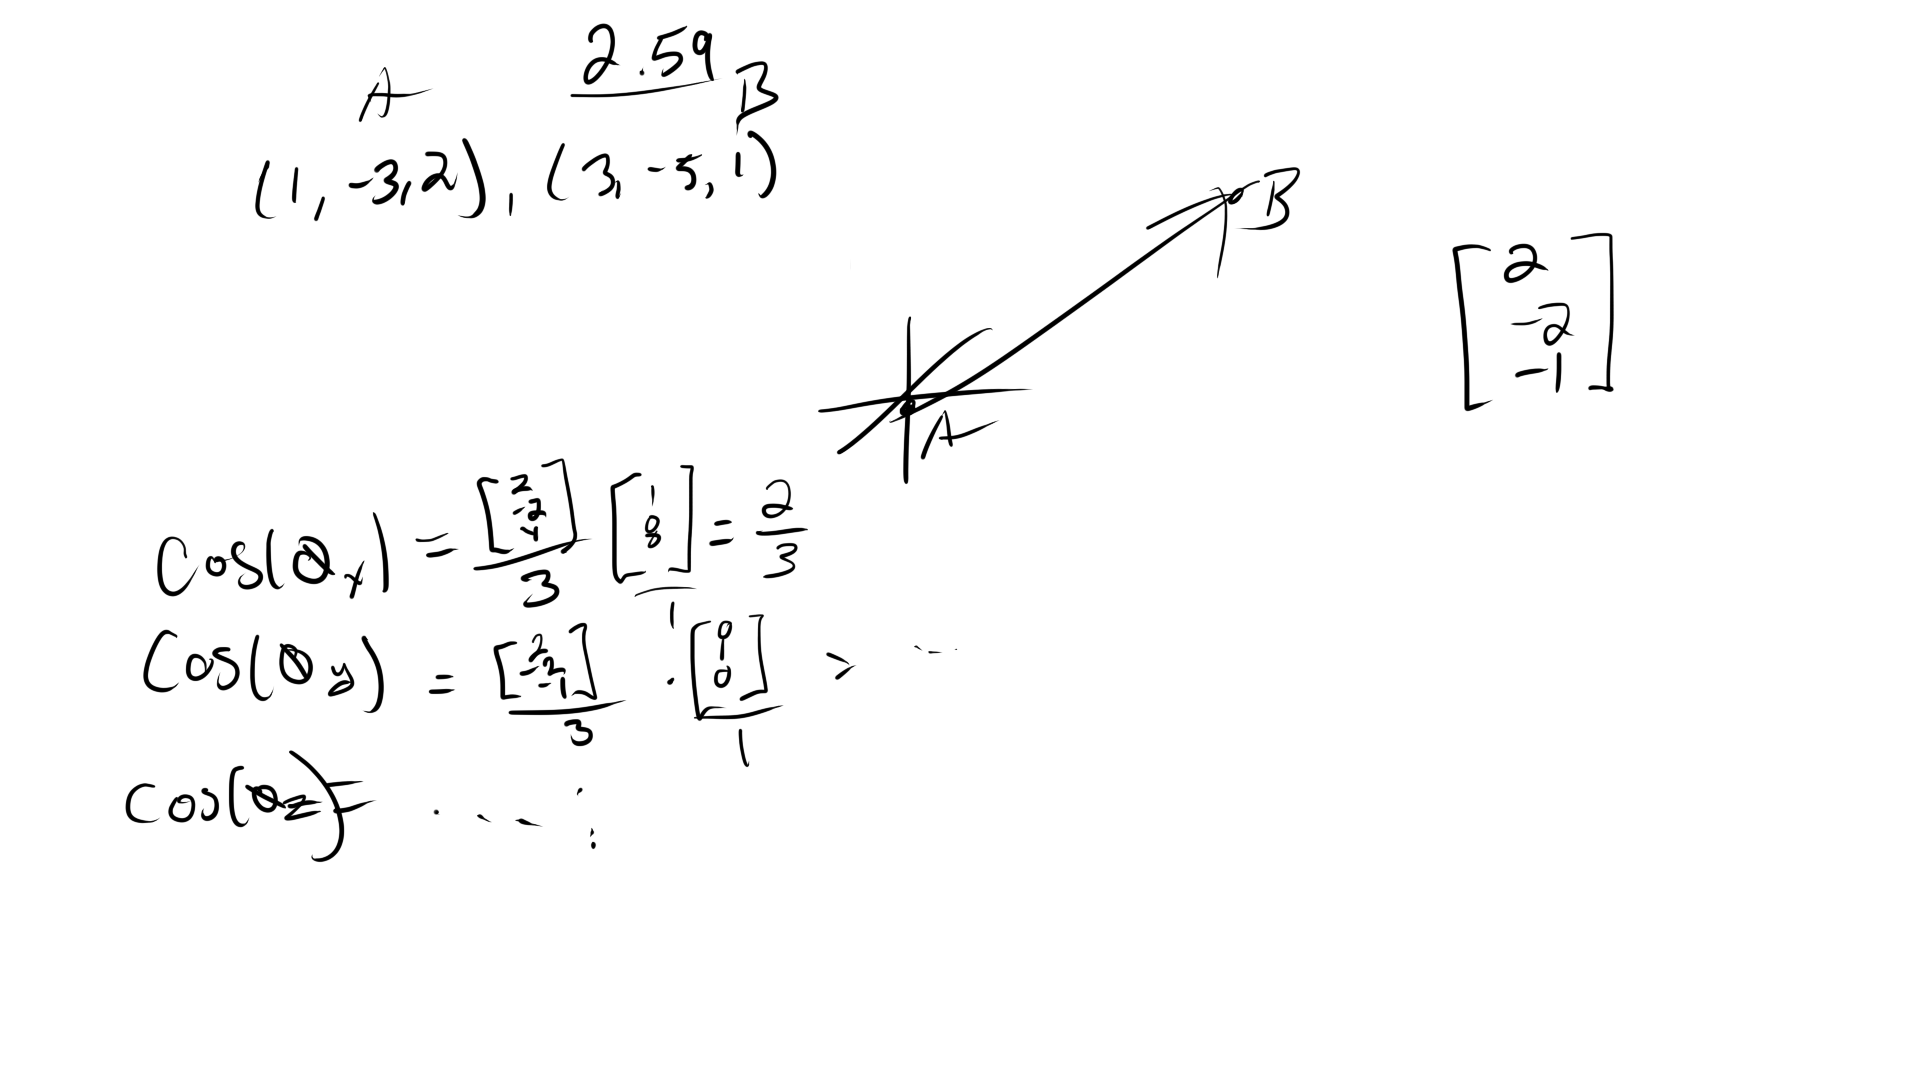 2.59
A B
(1, -3, 2), (3, -5, 1)
B
A
[2 -2 -1]
Cos(θx) = [2 -2 -1]/3 [1 0 0]/1 = 2/3
Cos(θy) = [2 -2 -1]/3 · [0 1 0]/1 = ...
Cos(θz) = ...